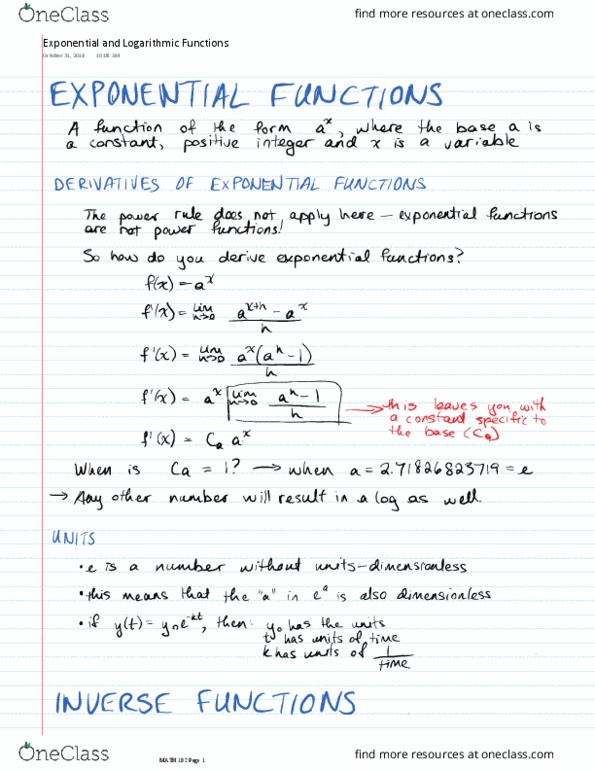 OneClass find more resources at oneclass.com
Exponential and Logarithmic Functions
October 31, 2018 10:08 AM
EXPONENTIAL FUNCTIONS
A function of the form a^x, where the base a is
a constant, positive integer and x is a variable
DERIVATIVES OF EXPONENTIAL FUNCTIONS
The power rule does not apply here – exponential functions
are not power functions!
So how do you derive exponential functions?
f(x) = a^x
f'(x) = lim h→0 (a^(x+h) - a^x)/h
f'(x) = lim h→0 a^x(a^h - 1)/h
f'(x) = a^x lim h→0 (a^h - 1)/h → this leaves you with
a constant specific to
the base (Ca)
f'(x) = Ca a^x
When is Ca = 1? → when a = 2.71826823719 = e
→ Any other number will result in a log as well.
UNITS
• e is a number without units - dimensionless
• this means that the "a" in e^a is also dimensionless
• if y(t) = y₀e^-kt, then: y₀ has the units
t has units of time
k has units of 1/time
INVERSE FUNCTIONS
OneClass MATH 102 Page 1 find more resources at oneclass.com